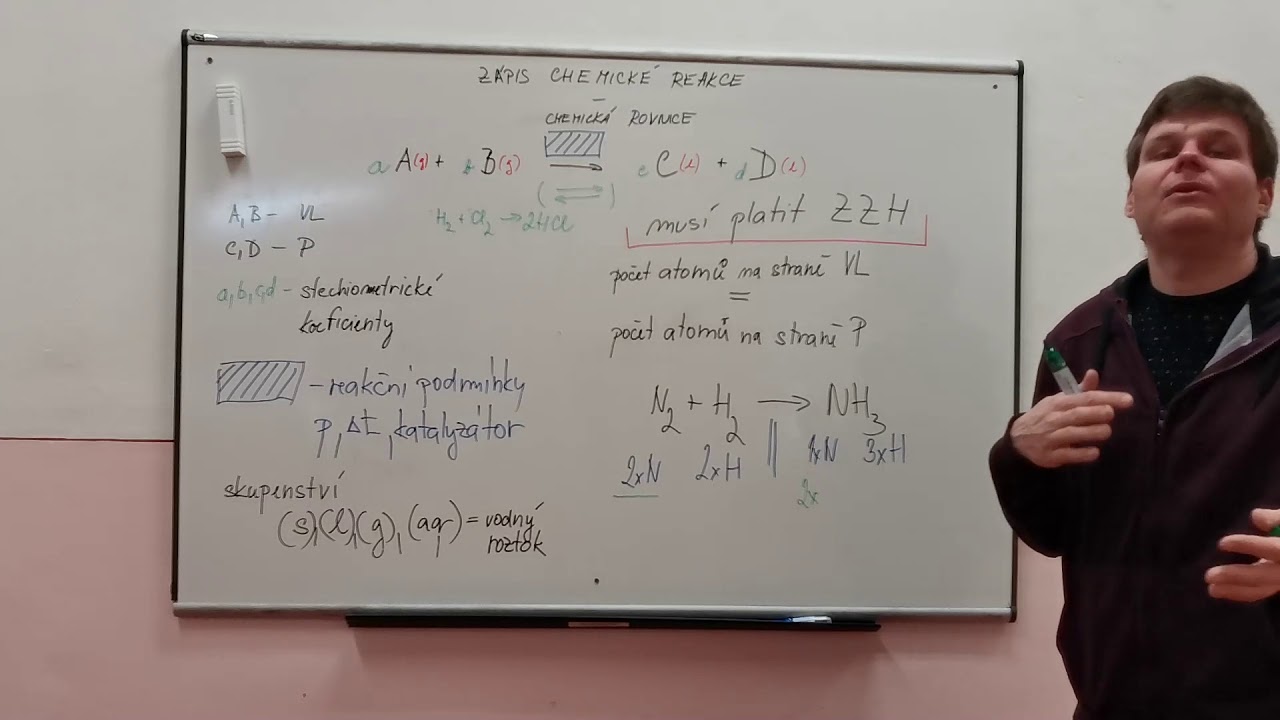 ZÁPIS CHEMICKÉ REAKCE
–
CHEMICKÁ ROVNICE
a A(g) + b B(g) → c C(l) + d D(l)
( ⇌ )
H₂ + Cl₂ → 2HCl
A,B – VL
C,D – P
a,b,c,d – stechiometrické
koeficienty
– reakční podmínky
p, Δt, katalyzátor
skupenství
(s),(l),(g),(aq) = vodný
roztok
musí platit ZZH
počet atomů na straně VL
=
počet atomů na straně P
N₂ + H₂ → NH₃
2xN 2xH || 1xN 3xH
2x